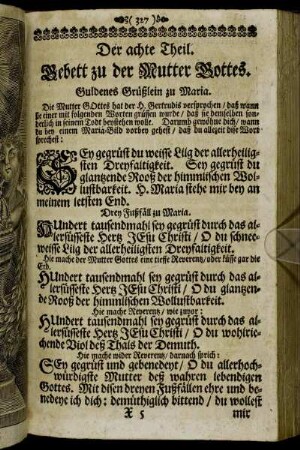 ( 327 )
Der achte Theil.
Gebett zu der Mutter Gottes.
Guldenes Grüßlein zu Maria.
Die Mutter GOttes hat der H. Gertrudis versprochen / daß wann
sie einer mit folgenden Worten grüssen wurde / daß sie demselben son-
derlich in seinem Todt beystehen wolle. Darumb gewöhne dich / wann
du bey einem Maria-Bild vorbey gehest / daß du allezeit dise Wort
sprechest:
SEy gegrüst du weisse Lilg der allerheilig-
sten Dreyfaltigkeit. Sey gegrüst du
glantzende Rooß der himmlischen Wol-
lustbarkeit. H. Maria stehe mir bey an
meinem letsten End.
Drey Fußfäll zu Maria.
HUndert tausendmahl sey gegrüst durch das al-
lersüsseste Hertz JEsu Christi / O du schnee-
weisse Lilg der allerheiligsten Dreyfaltigkeit.
Hie mache der Mutter Gottes eine tieffe Reverentz / oder küsse gar die
Erd.
HUndert tausendmahl sey gegrüst durch das al-
lersüsseste Hertz JEsu Christi / O du glantzen-
de Rooß der himmlischen Wollustbarkeit.
Hie mach Reverentz / wie zuvor:
HUndert tausendmahl sey gegrüst durch das al-
lersüsseste Hertz JEsu Christi / O du wohlrie-
chende Viol deß Thals der Demuth.
Hie mache wider Reverentz / darnach sprich:
SEy gegrüst und gebenedeyt / O du allerhoch-
würdigste Mutter deß wahren lebendigen
Gottes. Mit disen dreyen Fußfällen ehre und be-
nedeye ich dich: demüthiglich bittend / du wollest
X 5 mir